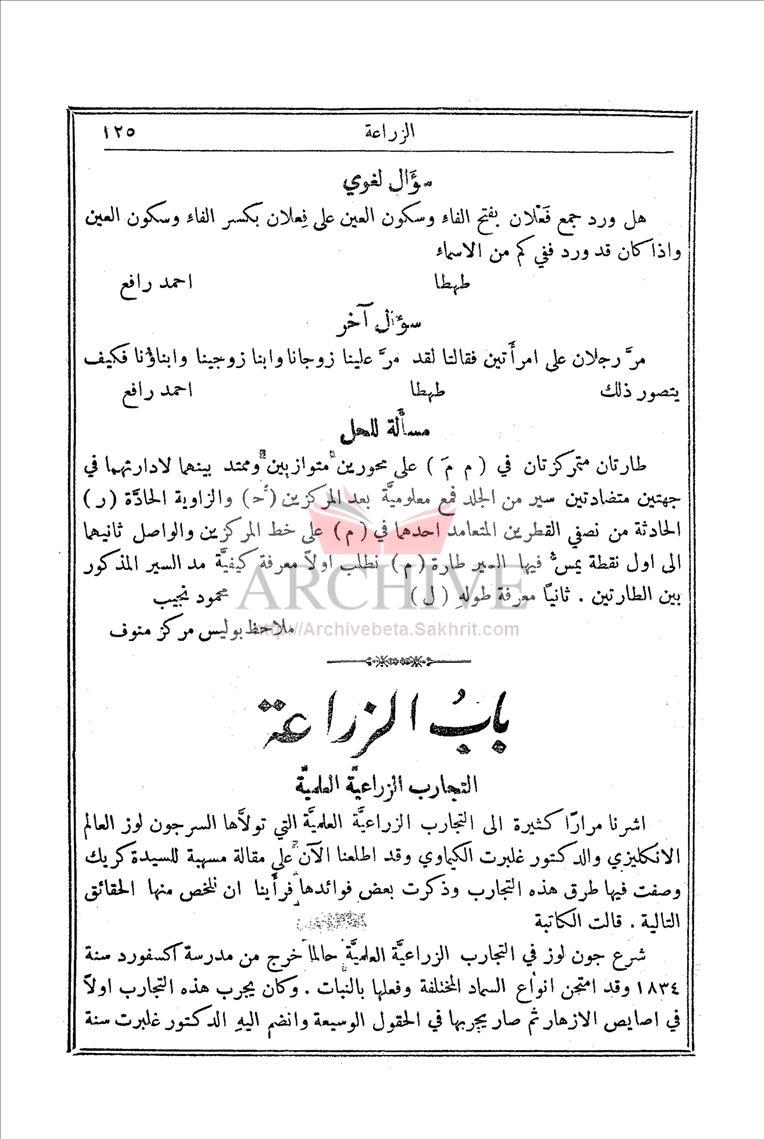 الزراعة ١٢٥
سؤال لغوي
هل ورد جمع فَعْلان بفتح الفاء وسكون العين على فِعلان بكسر الفاء وسكون العين
واذا كان قد ورد ففي كم من الاسماء
طهطا احمد رافع
سؤال آخر
مرَّ رجلان على امرأَتين فقالتا لقد مرَّ علينا زوجانا وابنا زوجينا وابناؤنا فكيف
يتصور ذلك طهطا احمد رافع
مسأَلة للحل
طارتان متمركزتان في ( م مَ ) على محورين متوازيين وممتد بينهما لادارتهما في
جهتين متضادتين سير من الجلد فمع معلوميَّة بعد المركزين (حـ) والزاوية الحادَّة (ر)
الحادثة من نصفي القطرين المتعامد احدهما في ( م ) على خط المركزين والواصل ثانيهما
الى اول نقطة يمسُّ فيها السير طارة (م) نطلب اولاً معرفة كيفيَّة مد السير المذكور
بين الطارتين . ثانياً معرفة طولهِ ( ل ) محمود نجيب
ملاحظ بوليس مركز منوف
ARCHIVE
http://Archivebeta.Sakhrit.com
بابُ الزراعة
التجارب الزراعيَّة العلميَّة
اشرنا مراراً كثيرة الى التجارب الزراعيَّة العلميَّة التي تولاَّها السر جون لوز العالم
الانكليزي والدكتور غلبرت الكيماوي وقد اطلعنا الآن على مقالة مسهبة للسيدة كريك
وصفت فيها طرق هذه التجارب وذكرت بعض فوائدها فرأَينا ان نلخص منها الحقائق
التالية . قالت الكاتبة
شرع جون لوز في التجارب الزراعيَّة العلميَّة حالما خرج من مدرسة اكسفورد سنة
١٨٣٤ وقد امتحن انواع السماد المختلفة وفعلها بالنبات . وكان يجرب هذه التجارب اولاً
في اصايص الازهار ثم صار يجربها في الحقول الوسيعة وانضم اليهِ الدكتور غلبرت سنة